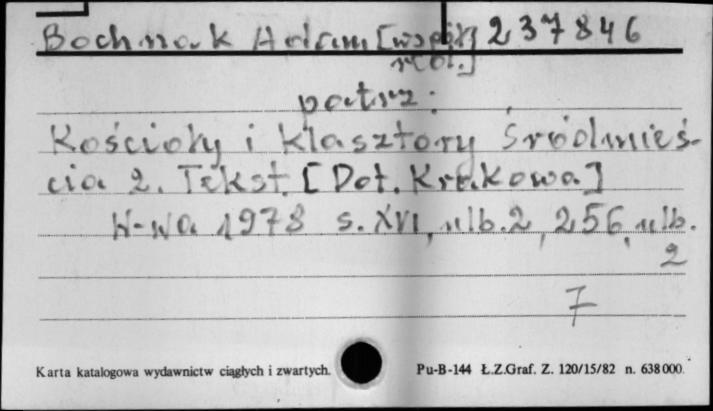 Bochnak Adam [współ 237846
red.]
patrz:
Kościoły i klasztory śródmieś-
cia 2. Tekst. [Dot. Krakowa]
W-wa 1978 s. XVI, nlb. 2, 256, nlb.
2
7
Karta katalogowa wydawnictw ciągłych i zwartych.
Pu-B-144 Ł.Z.Graf. Z. 120/15/82 n. 638000.